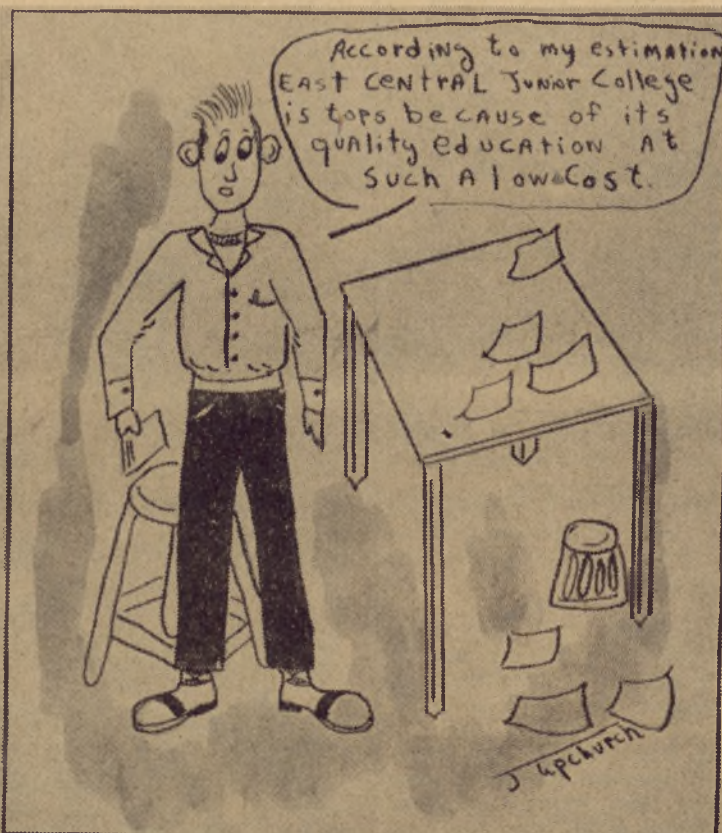 According to my estimation
EAST CENTRAL Junior College
is tops because of its
quality education At
Such A low Cost.
J Upchurch